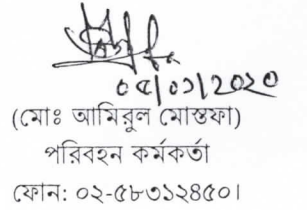 ০৫/০১/২০২০
(মোঃ আমিরুল মোস্তফা)
পরিবহন কর্মকর্তা
ফোন: ০২-৫৮৩১২৪৫০।